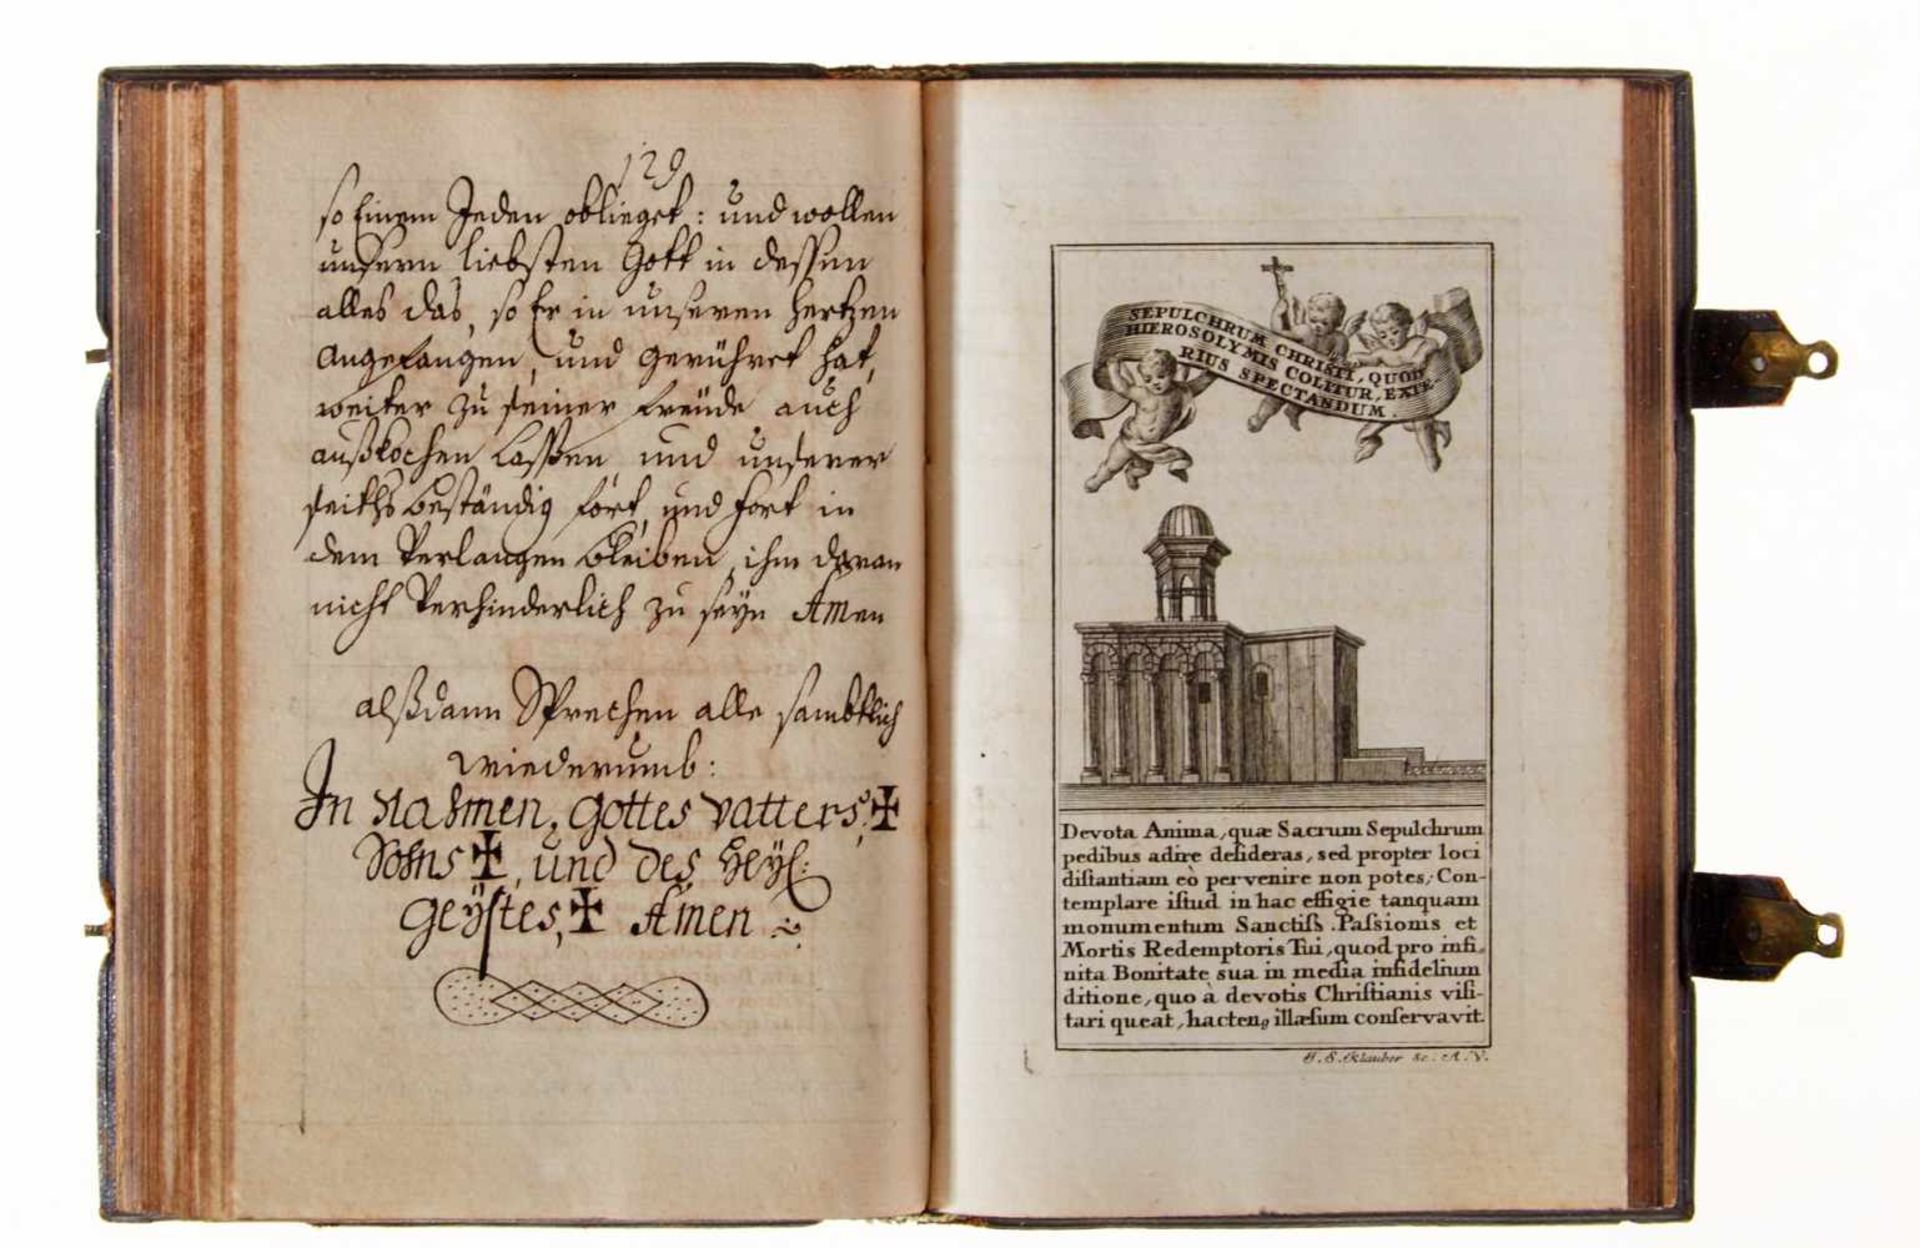 129
so Einem Jeden oblieget: und wollen
unsern liebsten Gott in dessen
alles das, so Er in unseren Hertzen
angefangen, und gerühret hat,
weiter zu seiner freüde auch
außkochen lassen und unserer
seiths beständig fört, und fort in
dem Verlangen bleiben, ihm daran
nicht Verhinderlich zu seyn Amen
alßdann Sprechen alle sambtlich
wiederumb:
In Nahmen, Gottes Vatters, ✠
Sohns ✠, und des Heyl:
Geystes, ✠ Amen
SEPULCHRUM CHRISTI, QUOD
HIEROSOLYMIS COLITUR, EXTE-
RIUS SPECTANDUM.
Devota Anima, quæ Sacrum Sepulchrum
pedibus adire desideras, sed propter loci
distantiam eò pervenire non potes; Con-
templare istud in hac effigie tanquam
monumentum Sanctiss. Passionis et
Mortis Redemptoris Tui, quod pro infi-
nita Bonitate sua in media infidelium
ditione, quo à devotis Christianis visi-
tari queat, hactenꝰ illæsum conservavit.
J. S. Klauber Sc. A. V.